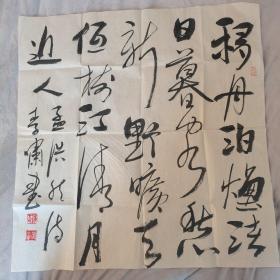 移舟泊煙渚
日暮客愁
新野曠天
低樹江清月
近人
孟浩然诗
李嘯書